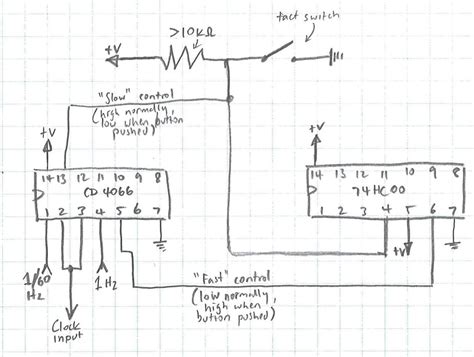 >10KΩ
tact switch
+V
"Slow" control
(high normally,
low when button
pushed)
+V
+V
14 13 12 11 10 9 8
CD 4066
1 2 3 4 5 6 7
14 13 12 11 10 9 8
74HC00
1 2 3 4 5 6 7
1/60
Hz
1 Hz
+V
"Fast" control
(low normally,
high when
button pushed)
Clock
input